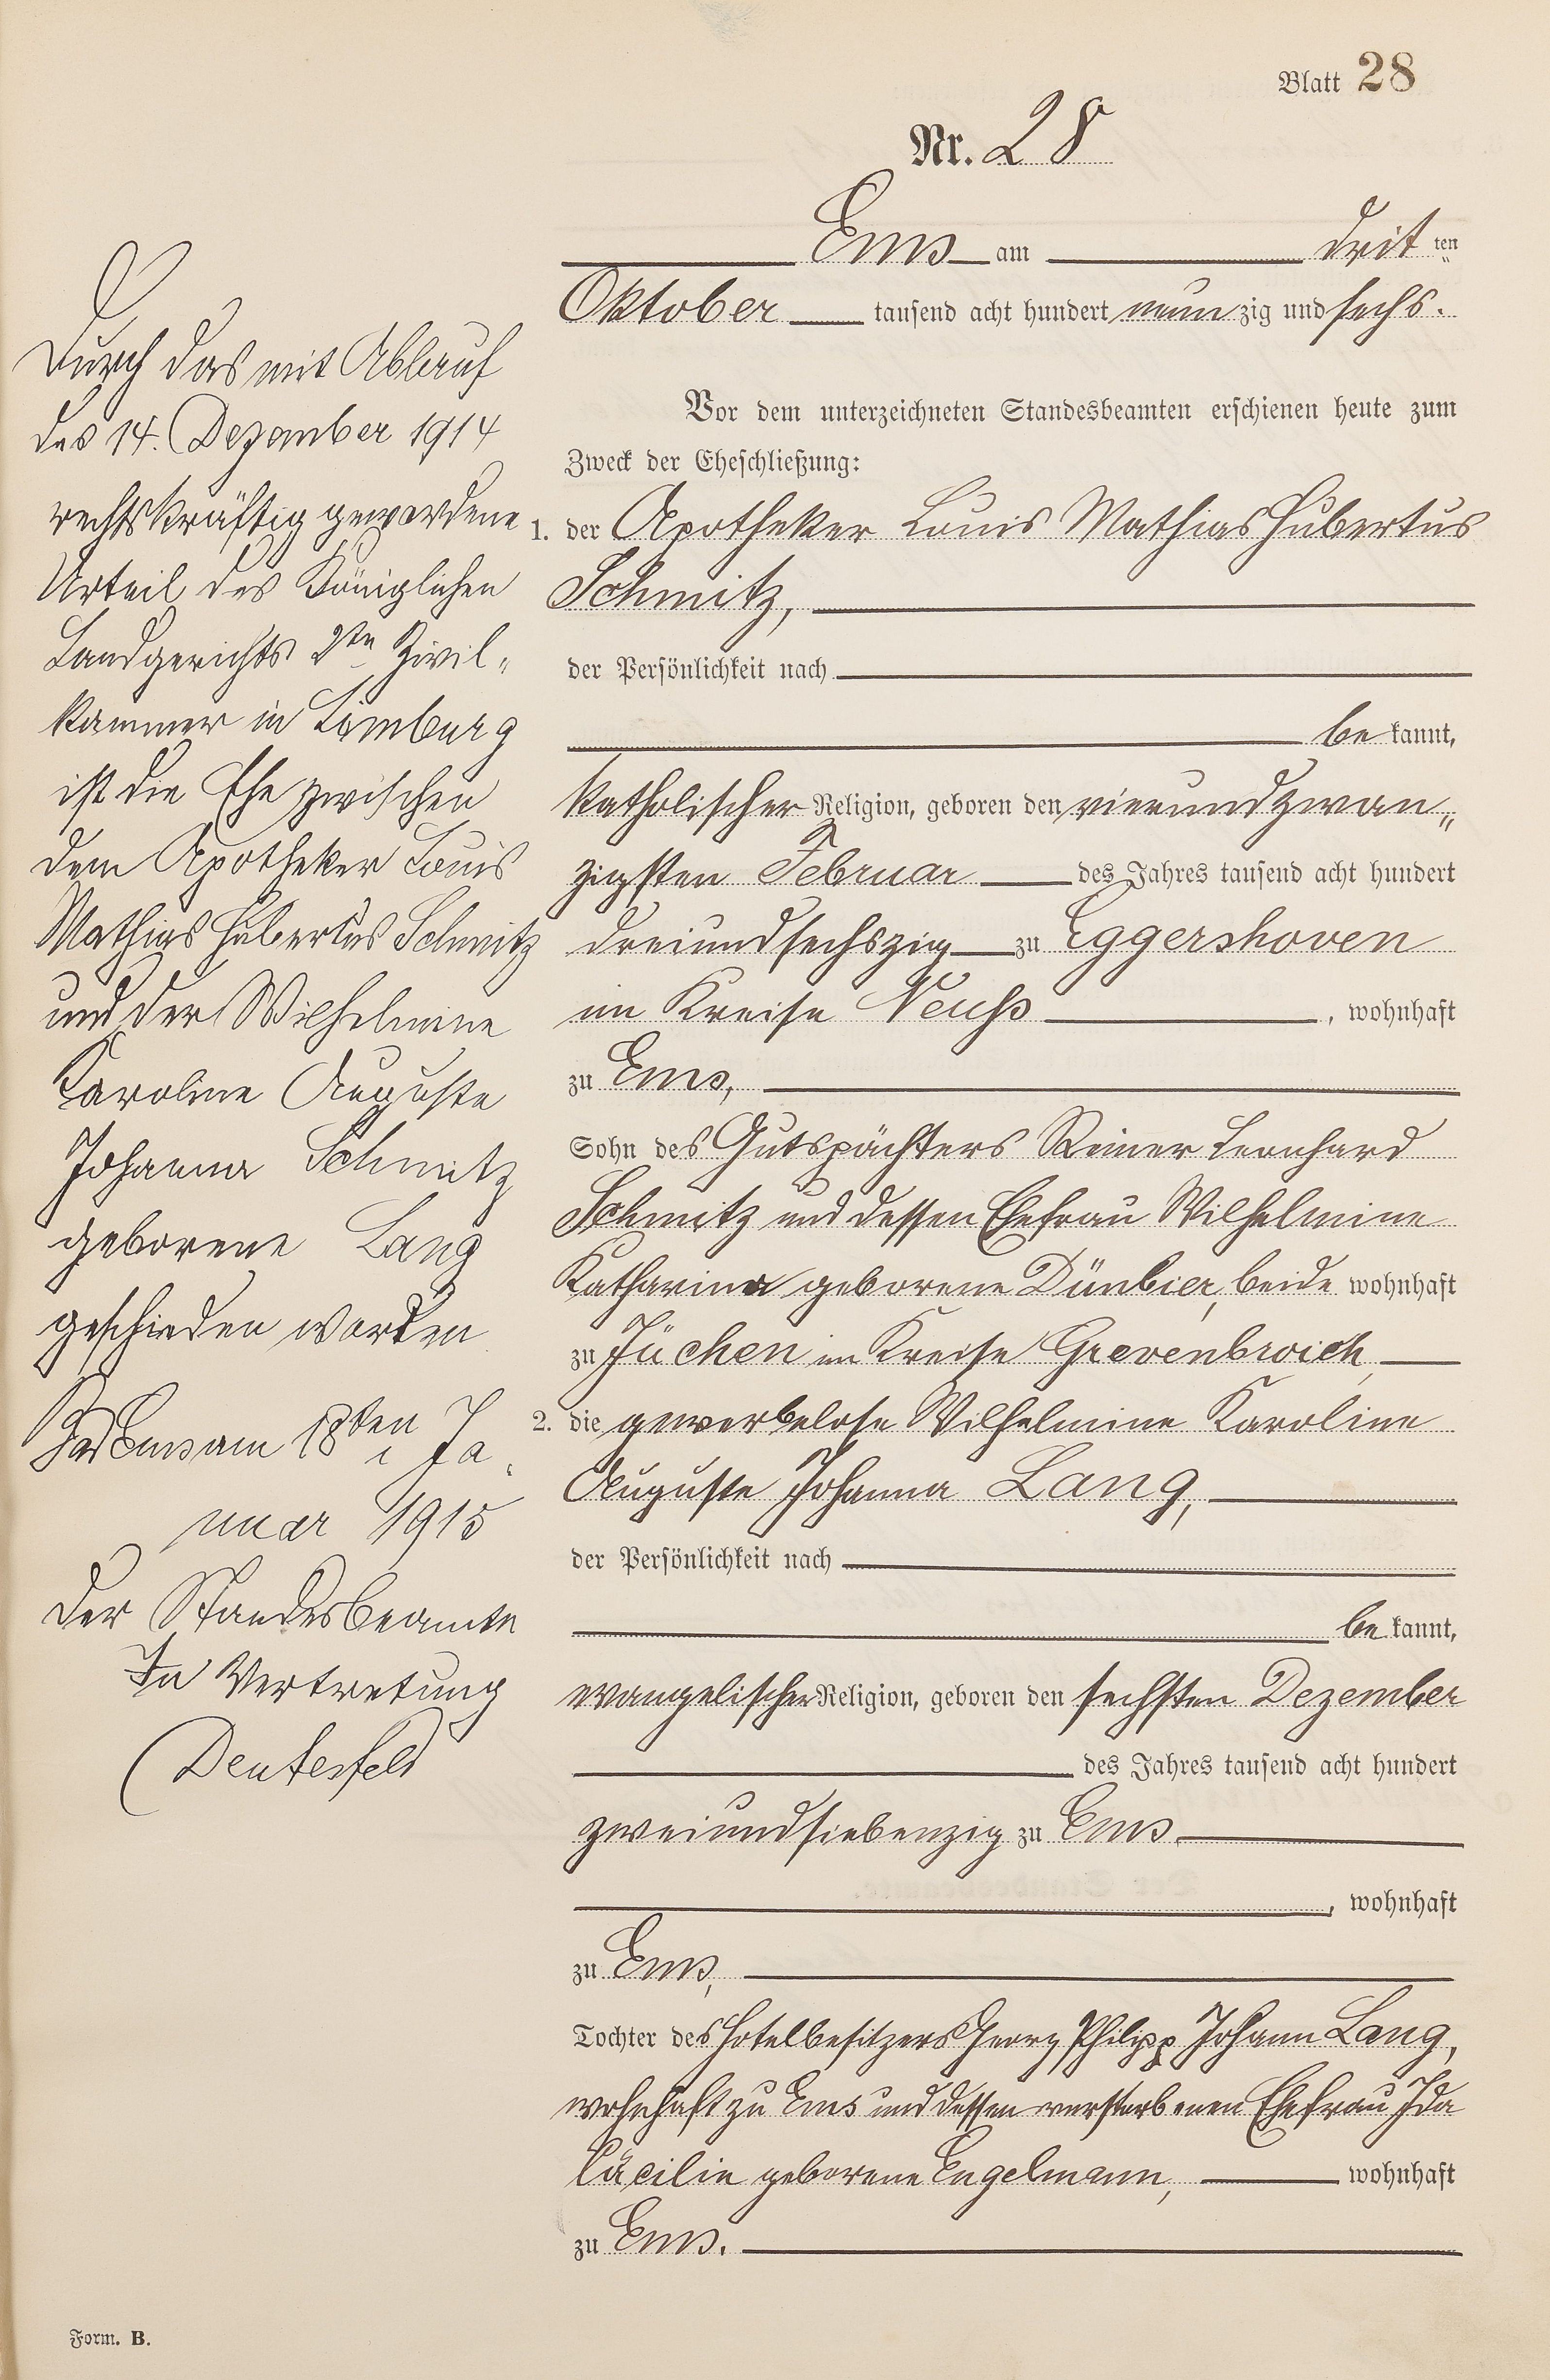 Blatt 28
Nr. 28
Ems am dritten
Oktober tausend acht hundert neunzig und sechs.
Vor dem unterzeichneten Standesbeamten erschienen heute zum
Zweck der Eheschließung:
1. der Apotheker Louis Mathias Hubertus
Schmitz,
der Persönlichkeit nach
bekannt,
katholischer Religion, geboren den vierundzwan„
zigsten Februar des Jahres tausend acht hundert
dreiundsechszig zu Eggershoven
im Kreise Neuß, wohnhaft
zu Ems,
Sohn des Gutspächters Reiner Leonhard
Schmitz und dessen Ehefrau Wilhelmine
Katharina geborene Dünbier, beide wohnhaft
zu Jüchen im Kreise Grevenbroich,
2. die gewerbelose Wilhelmine Karoline
Auguste Johanna Lang,
der Persönlichkeit nach
bekannt,
evangelischer Religion, geboren den sechsten Dezember
des Jahres tausend acht hundert
zweiundsiebenzig zu Ems
, wohnhaft
zu Ems,
Tochter des Hotelbesitzers Georg Philipp Johann Lang,
wohnhaft zu Ems und dessen verstorbenen Ehefrau Ida
Cäcilie geborene Engelmann, wohnhaft
zu Ems.
Durch das mit Ablauf
des 14. Dezember 1914
rechtskräftig gewordene
Urteil des Königlichen
Landgerichts 2te Zivil„
kammer in Limburg
ist die Ehe zwischen
dem Apotheker Louis
Mathias Hubertus Schmitz
und der Wilhelmine
Karoline Auguste
Johanna Schmitz
geborene Lang
geschieden worden
Bad Ems am 18ten Ja
nuar 1915
Der Standesbeamte
In Vertretung
Deutesfeld
Form. B.